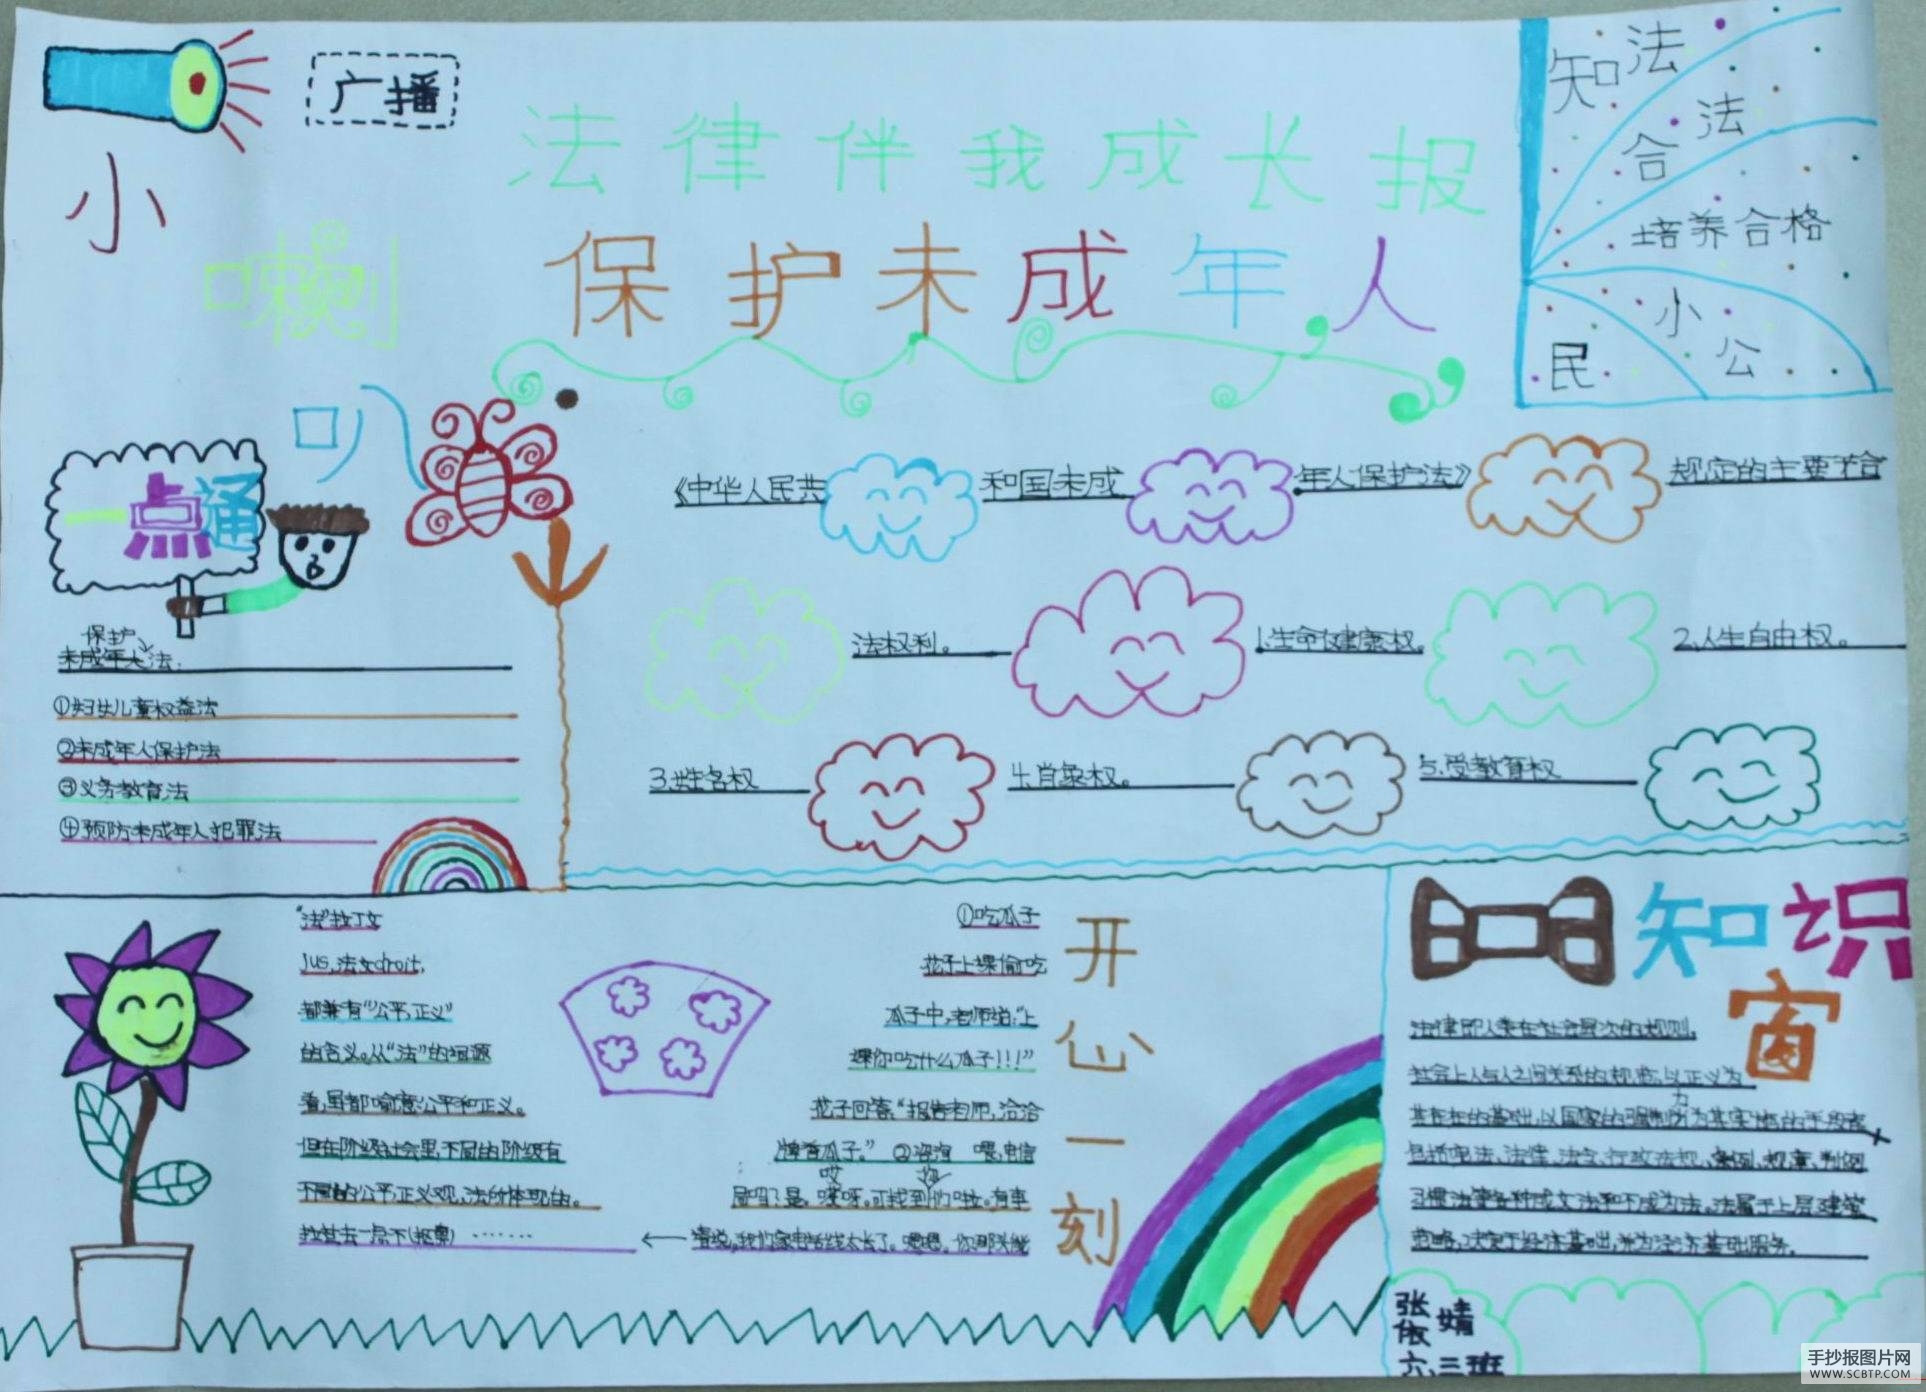 广播
小
喇
叭
法律伴我成长报
保护未成年人
知法
合法
培养合格
小公
民
一点通
保护
未成年人法:
①妇女儿童权益法
②未成年人保护法
③义务教育法
④预防未成年人犯罪法
《中华人民共 和国未成 年人保护法》 规定的主要合
法权利。 1.生命健康权。 2.人生自由权。
3.姓名权 4.肖象权。 5.受教育权
"法"拉丁文
Jus,法文droit,
都兼有"公平,正义"
的含义。从"法"的词源
看,是都喻意公平和正义。
但在阶级社会里,不同的阶级有
不同的公平,正义观,法价体现的。
开心一刻
①吃瓜子
花子上课偷吃
瓜子中,老师怕:"上
课你吃什么瓜子!!!"
花子回答:"报告老师,洽洽
牌香瓜子。" ②咨询 喂,电信
局吗?是。哎呀。可找到你们啦。有事
请说,我们家电话线太长了。嗯嗯。你那头能
拉过去一点不(抠鼻) ……
知识
窗
法律即人类在社会层次的规则,
社会上人与人之间关系的规范,以正义为
其存在的基础,以国家的强制力为其实施的手段者
包括宪法、法律、法令、行政法规、条例、规章、判例
习惯法等各种成文法和不成为法。法属于上层建筑
范畴,决定于经济基础,并为经济基础服务。
张
依婧
六.三班
手抄报图片网
WWW.SCBTP.COM